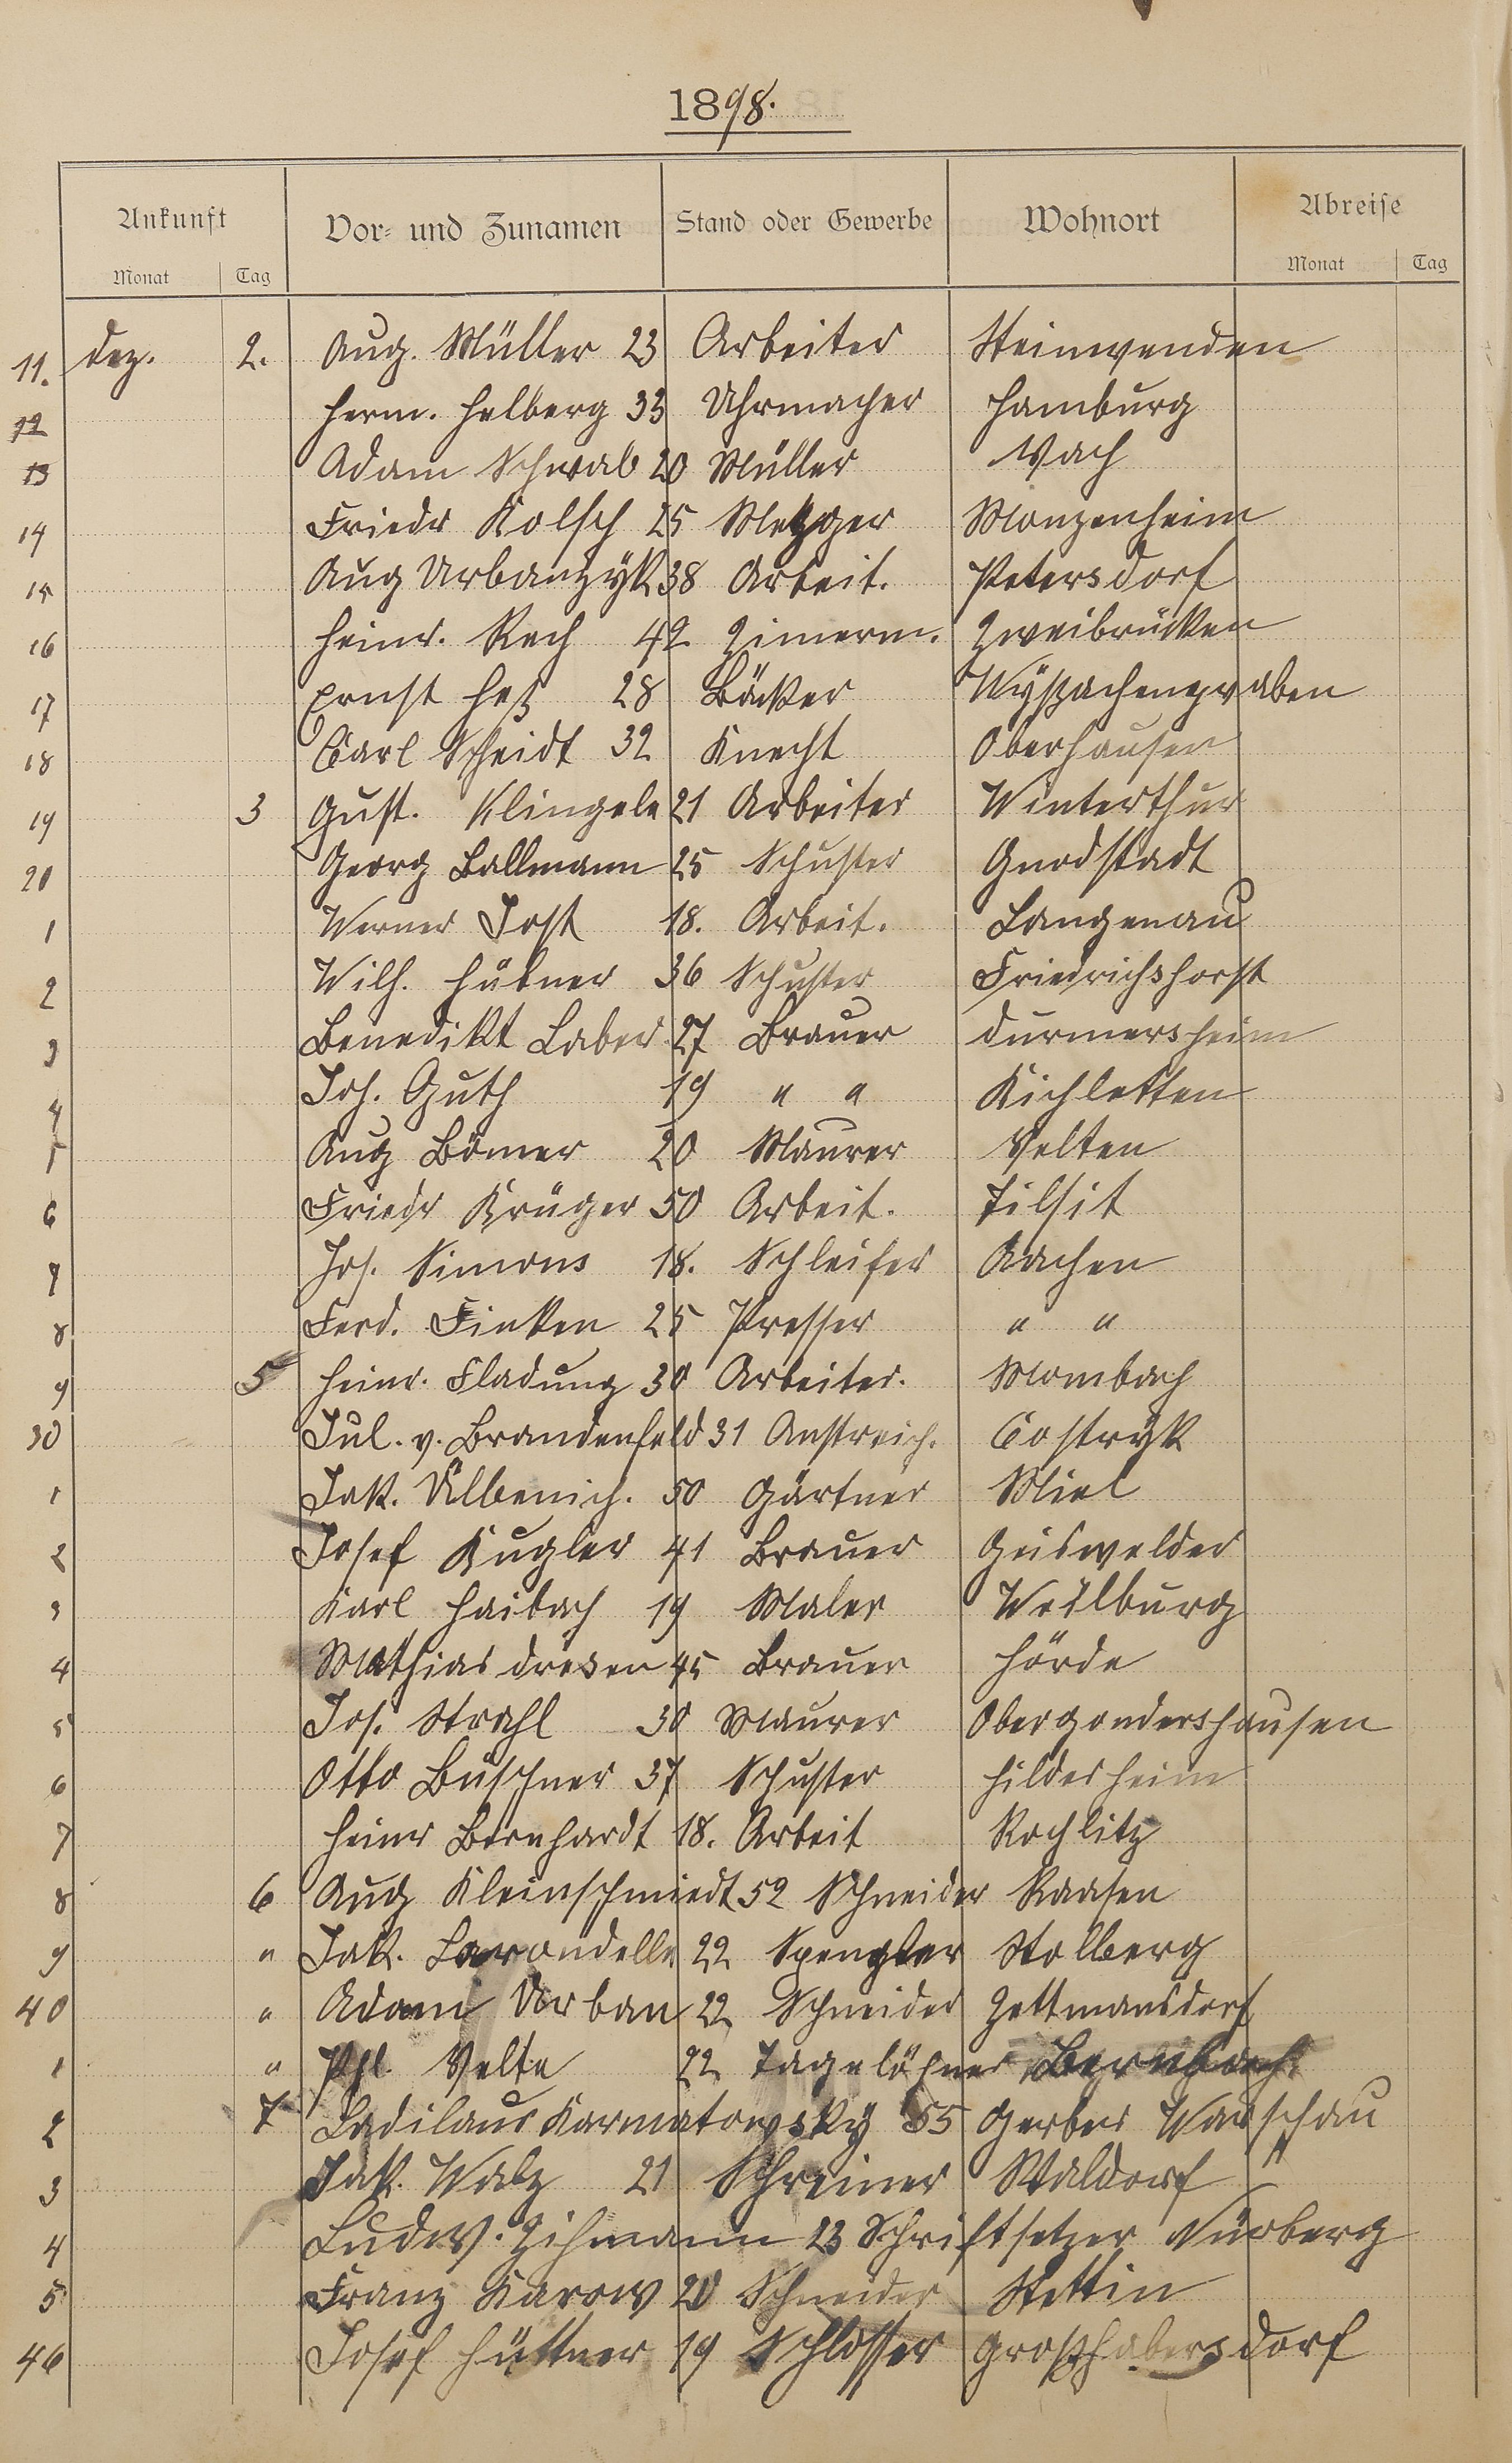 1898.
Ankunft Vor- und Zunamen Stand oder Gewerbe Wohnort Abreise
Monat Tag Monat Tag
11. Dez. 2. Aug. Müller 23 Arbeiter Steinwenden
12 Herm. Helberg 33 Uhrmacher Hamburg
13 Adam Schwab 20 Müller Vach
14 Friedr Kolsch 25 Metzger Monzenheim
15 Aug Urbanzyk 38 Arbeit. Petersdorf
16 Heinr. Rech 42 Zimerm. Zweibrücken
17 Ernst Heß 28 Bäcker
18 Carl Scheidt 32 Knecht Oberhausen
19 3 Gust. Klingele 21 Arbeiter Winterthur
20 Georg Ballmann 25 Schuster Gnodstadt
1 Werner Jost 18. Arbeit. Langenau
2 Wilh. Hübner 36 Schuster Friedrichshorst
3 Benedikt Laber 27 Brauer Durmersheim
4 Joh. Guth 19 " " Kichletten
5 Aug Bömer 20 Maurer Velten
6 Friedr Krüger 50 Arbeit. Tilsit
7 Jos. Simons 18. Schleifer Aachen
8 Ferd. Finken 25 Presser " "
9 5 Heinr. Fladung 30 Arbeiter. Mombach
30 Jul. v. Brandenfeld 31 Anstreich. Costryk
1 Jak. Ülbenich. 50 Gärtner Miel
2 Josef Kugler 41 Brauer
3 Karl Haibach 19 Maler Weilburg
4 Mathias Dresen 45 Brauer Hörde
5 Jos. Strahl 30 Maurer Obergondershausen
6 Otto Büschner 37 Schuster Hildesheim
7 Heinr Bernhardt 18. Arbeit Rochlitz
8 6 Aug Kleinschmiedt 52 Schneider Raasen
9 " Jak. Larondelle 22 Spengler Stolberg
40 " Adam Urban 22 Schneider Zettmansdorf
1 " Phl. Velte 22 Tagelöhner Bernbach
2 7 Ladilaus Karmatowsky 55 Gerber Warschau
3 Jak. Walz 21 Schreiner Waldorf
4 Ludw. Zihmann 23 Schriftsetzer Nürberg
5 Franz Karow 20 Schneider Stettin
46 Josef Hüttner 19 Schlosser Großhabersdorf